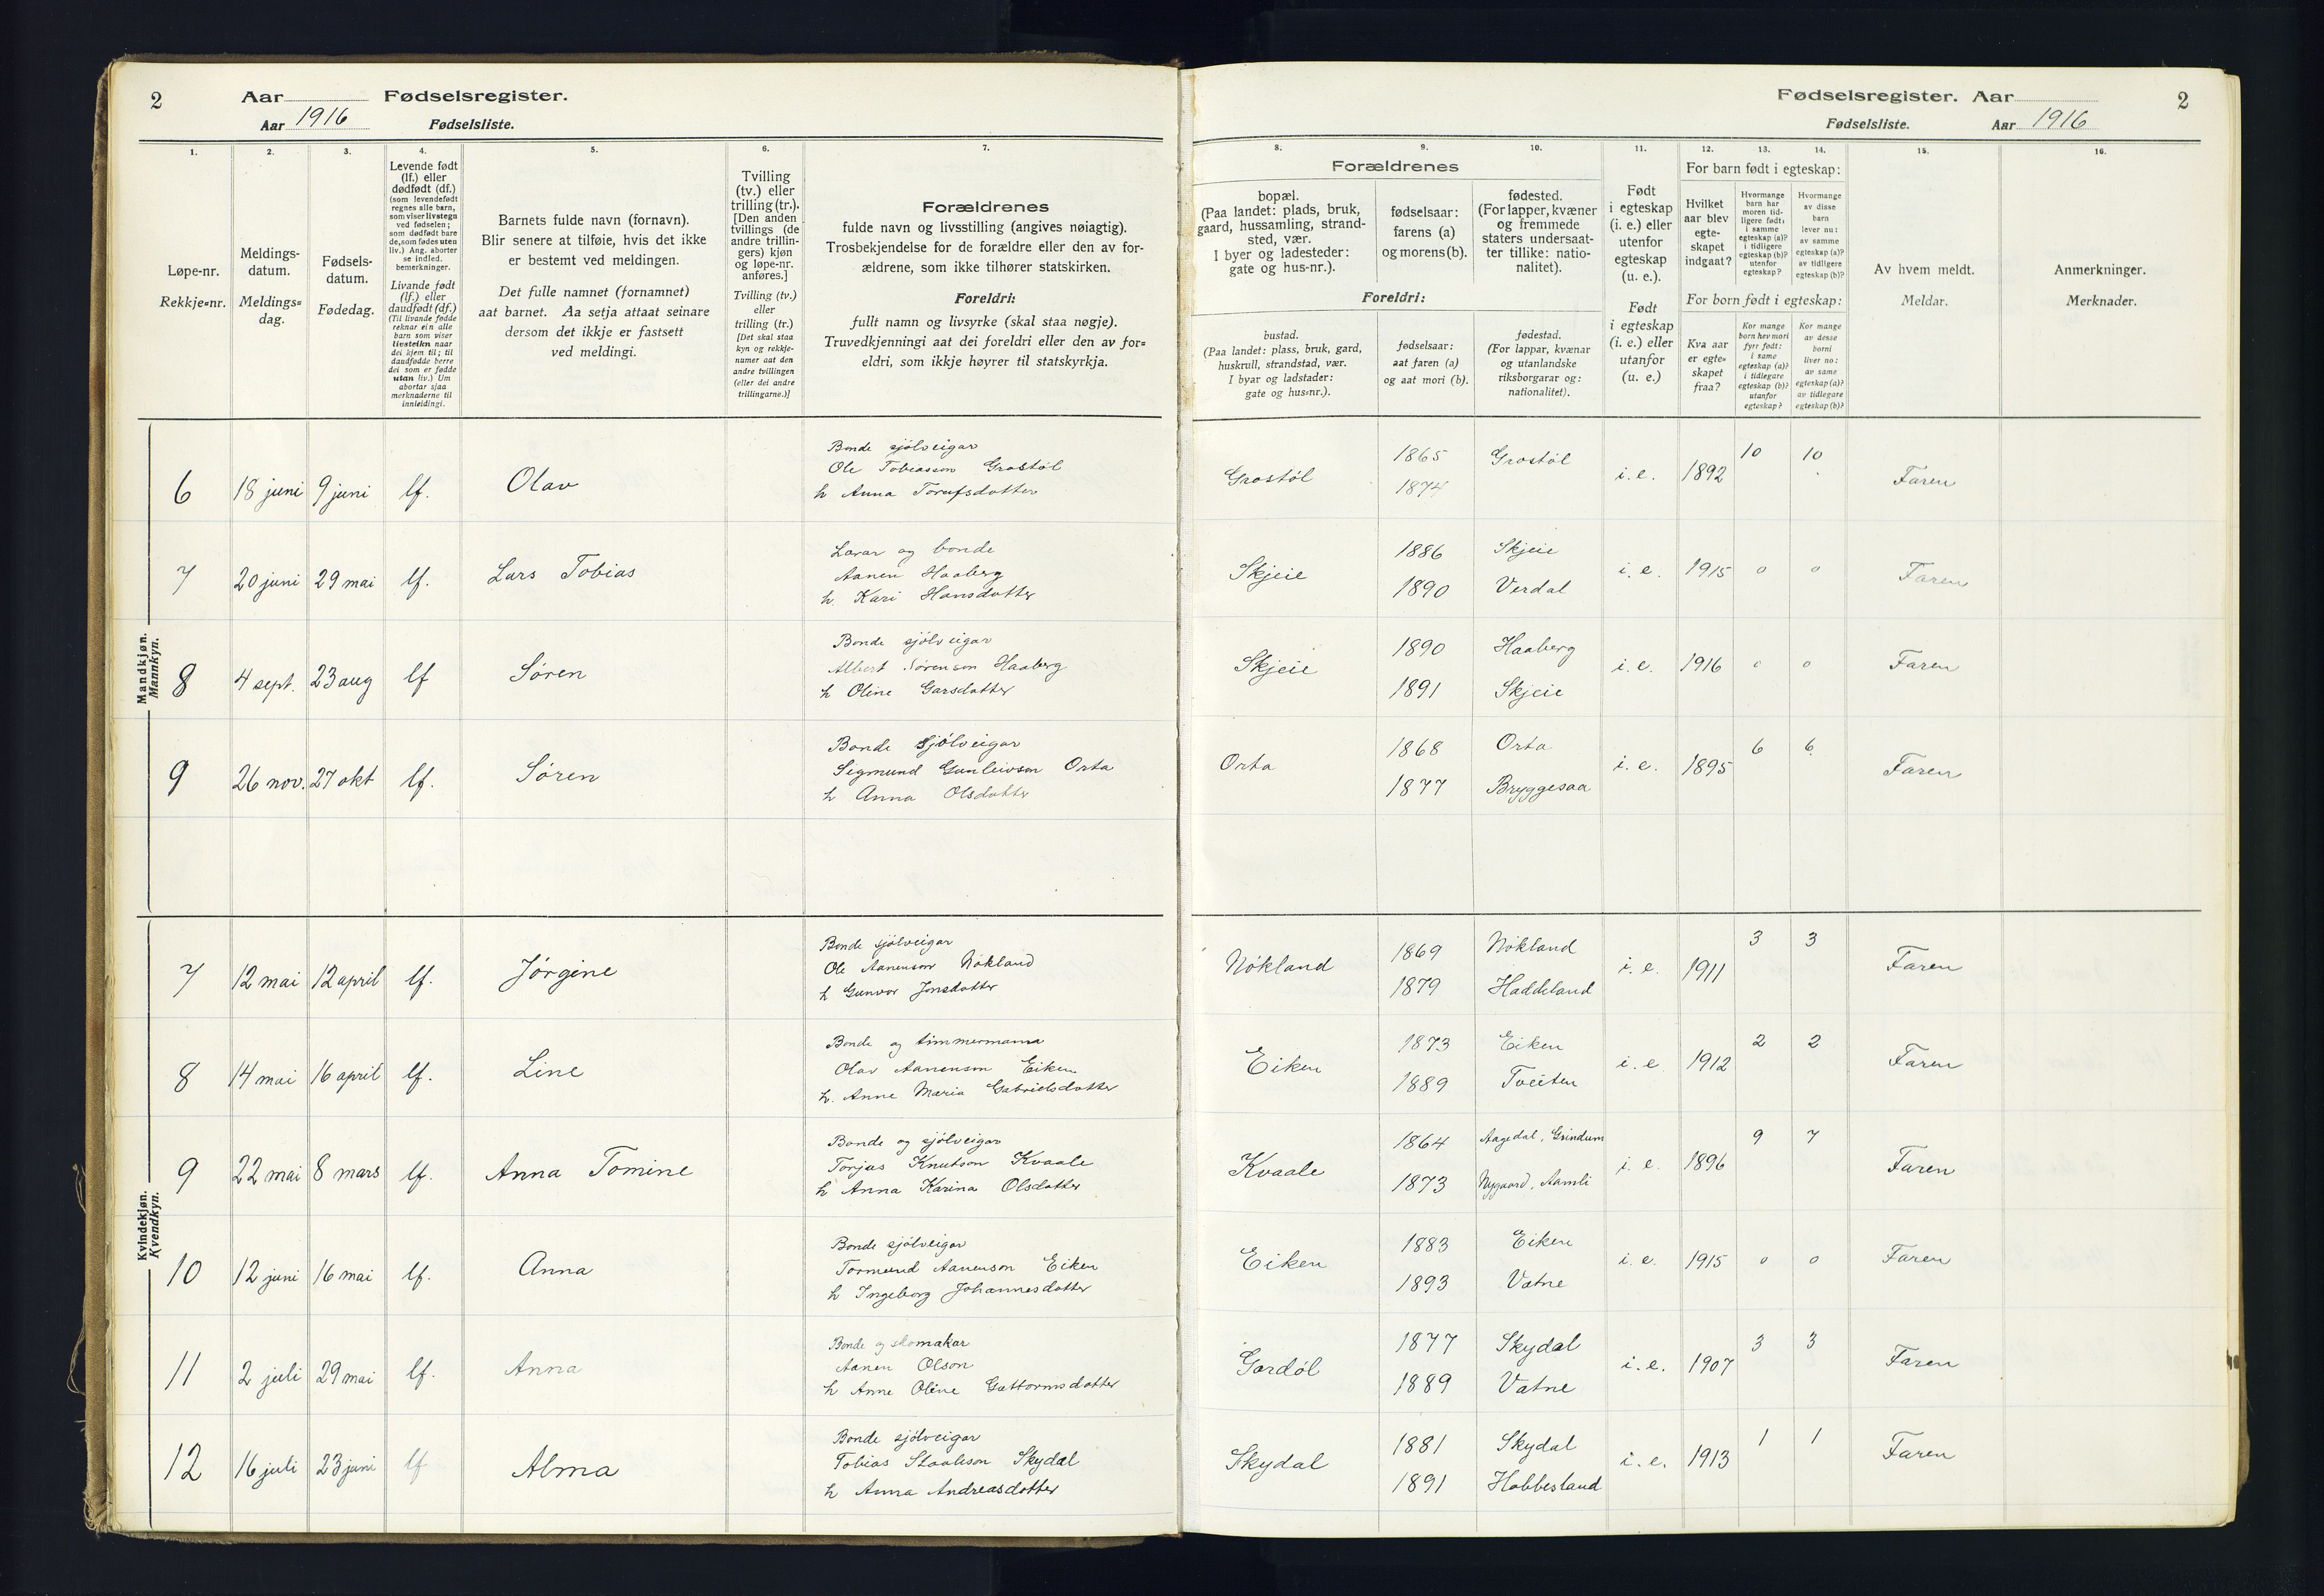 2 Aar Fødselsregister.
Aar 1916 Fødselsliste.
1. 2. 3. 4. 5. 6. 7.
Løpe-nr.
Rekkje=nr.
Meldings-
datum.
Meldings=
dag.
Fødsels-
datum.
Fødedag.
Levende født
(lf.) eller
dødfødt (df.)
(som levendefødt
regnes alle barn,
som viser livstegn
ved fødselen;
som dødfødt bare
de, som fødes uten
liv.) Ang. aborter
se indled.
bemerkninger.
Livande født
(lf.) eller
daudfødt (df.)
(Til livande fødde
reknar ein alle
barn som viser
livsteikn naar
dei kjem til; til
daudfødde berre
dei som er fødde
utan liv.) Um
abortar sjaa
merknaderne til
innleidingi.
Barnets fulde navn (fornavn).
Blir senere at tilføie, hvis det ikke
er bestemt ved meldingen.
Det fulle namnet (fornamnet)
aat barnet. Aa setja attaat seinare
dersom det ikkje er fastsett
ved meldingi.
Tvilling
(tv.) eller
trilling (tr.).
[Den anden
tvillings (de
andre trillin-
gers) kjøn
og løpe-nr.
anføres.]
Tvilling (tv.)
eller
trilling (tr.)
[Det skal staa
kyn og rekkje-
numer aat den
andre tvillingen
(eller dei andre
trillingarne.)]
Forældrenes
fulde navn og livsstilling (angives nøiagtig).
Trosbekjendelse for de forældre eller den av for-
ældrene, som ikke tilhører statskirken.
Foreldri:
fullt namn og livsyrke (skal staa nøgje).
Truvedkjenningi aat dei foreldri eller den av for=
eldri, som ikkje høyrer til statskyrkja.
Mandkjøn.
Mannkyn.
6 18 juni 9 juni lf. Olav
Bonde sjölveigar
Ole Tobiasson Grostöl
h Anna Torufsdotter
7 20 juni 29 mai lf. Lars Tobias
Lærar og bonde
Aanen Haaberg
h. Kari Hansdotter
8 4 sept. 23 aug lf Søren
Bonde sjölveigar
Albert Sörenson Haaberg
h Oline Garsdotter
9 26 nov. 27 okt lf. Søren
Bonde Sjölveigar
Sigmund Gunleivson Orta
h Anna Olsdotter
Kvindekjøn.
Kvendkyn.
7 12 mai 12 april lf. Jørgine
Bonde sjölveigar
Ole Aanenson Nökland
h Gunvor Jonsdotter
8 14 mai 16 april lf. Line
Bonde og timmermann
Olav Aanenson Eiken
h. Anne Maria Gabrielsdotter
9 22 mai 8 mars lf. Anna Tomine
Bonde og sjölveigar
Torjus Knutson Kvaale
h Anna Karina Olsdotter
10 12 juni 16 mai lf. Anna
Bonde sjölveigar
Tormund Aanenson Eiken
h Ingeborg Johannesdotter
11 2 juli 29 mai lf. Anna
Bonde og skomakar
Aanen Olson
h Anne Oline Guttormsdotter
12 16 juli 23 juni lf Alma
Bonde sjölveigar
Tobias Staaleson Skydal
h Anna Andreasdotter
Fødselsregister. Aar 2
Fødselsliste. Aar 1916
8. 9. 10. 11. 12. 13. 14. 15. 16.
Forældrenes
bopæl.
(Paa landet: plads, bruk,
gaard, hussamling, strand-
sted, vær.
I byer og ladesteder:
gate og hus-nr.).
fødselsaar:
farens (a)
og morens (b).
fødested.
(For lapper, kvæner
og fremmede
staters undersaat-
ter tillike: natio-
nalitet).
Foreldri:
bustad.
(Paa landet: plass, bruk, gard,
huskrull, strandstad, vær.
I byar og ladstader:
gate og hus=nr.).
fødselsaar:
aat faren (a)
og aat mori (b).
fødestad.
(For lappar, kvænar
og utanlandske
riksborgarar og:
nationalitet).
Født
i egteskap
(i. e.) eller
utenfor
egteskap
(u. e.).
Født
i egteskap
(i. e.) eller
utanfor
(u. e.)
For barn født i egteskap:
Hvilket
aar blev
egte-
skapet
indgaat?
Hvormange
barn har
moren tid-
ligere født:
i samme
egteskap (a)?
i tidligere
egteskap (b)?
utenfor
egteskap?
Hvormange
av disse
barn
lever nu:
av samme
egteskap (a)?
av tidligere
egteskap (b)?
For born født i egteskap:
Kva aar
er egte=
skapet
fraa?
Kor mange
born hev mori
fyrr født:
i same
egteskap (a)?
i tidlegare
egteskap (b)?
utanfor
egteskap?
Kor mange
av desse
borni
liver no:
av same
egteskap (a)?
av tidlegare
egteskap (b)?
Av hvem meldt.
Meldar.
Anmerkninger.
Merknader.
Grostöl 1865 Grostöl i. e. 1892 10 10 Faren
1874
Skjeie 1886 Skjeie i. e. 1915 0 0 Faren
1890 Verdal
Skjeie 1890 Haaberg i. e. 1916 0 0 Faren
1891 Skjeie
Orta 1868 Orta i. e. 1895 6 6 Faren
1877 Bryggesaa
Nökland 1869 Nökland i. e. 1911 3 3 Faren
1879 Haddeland
Eiken 1873 Eiken i. e 1912 2 2 Faren
1889 Tveiten
Kvaale 1864 Aagedal, Grindum i. e. 1896 9 7 Faren
1873 Nygaard, Aamli
Eiken 1883 Eiken i. e. 1915 0 0 Faren
1893 Vatne
Gardöl 1877 Skydal i. e. 1907 3 3 Faren
1889 Vatne
Skydal 1881 Skydal i. e. 1913 1 1 Faren
1891 Hobbesland